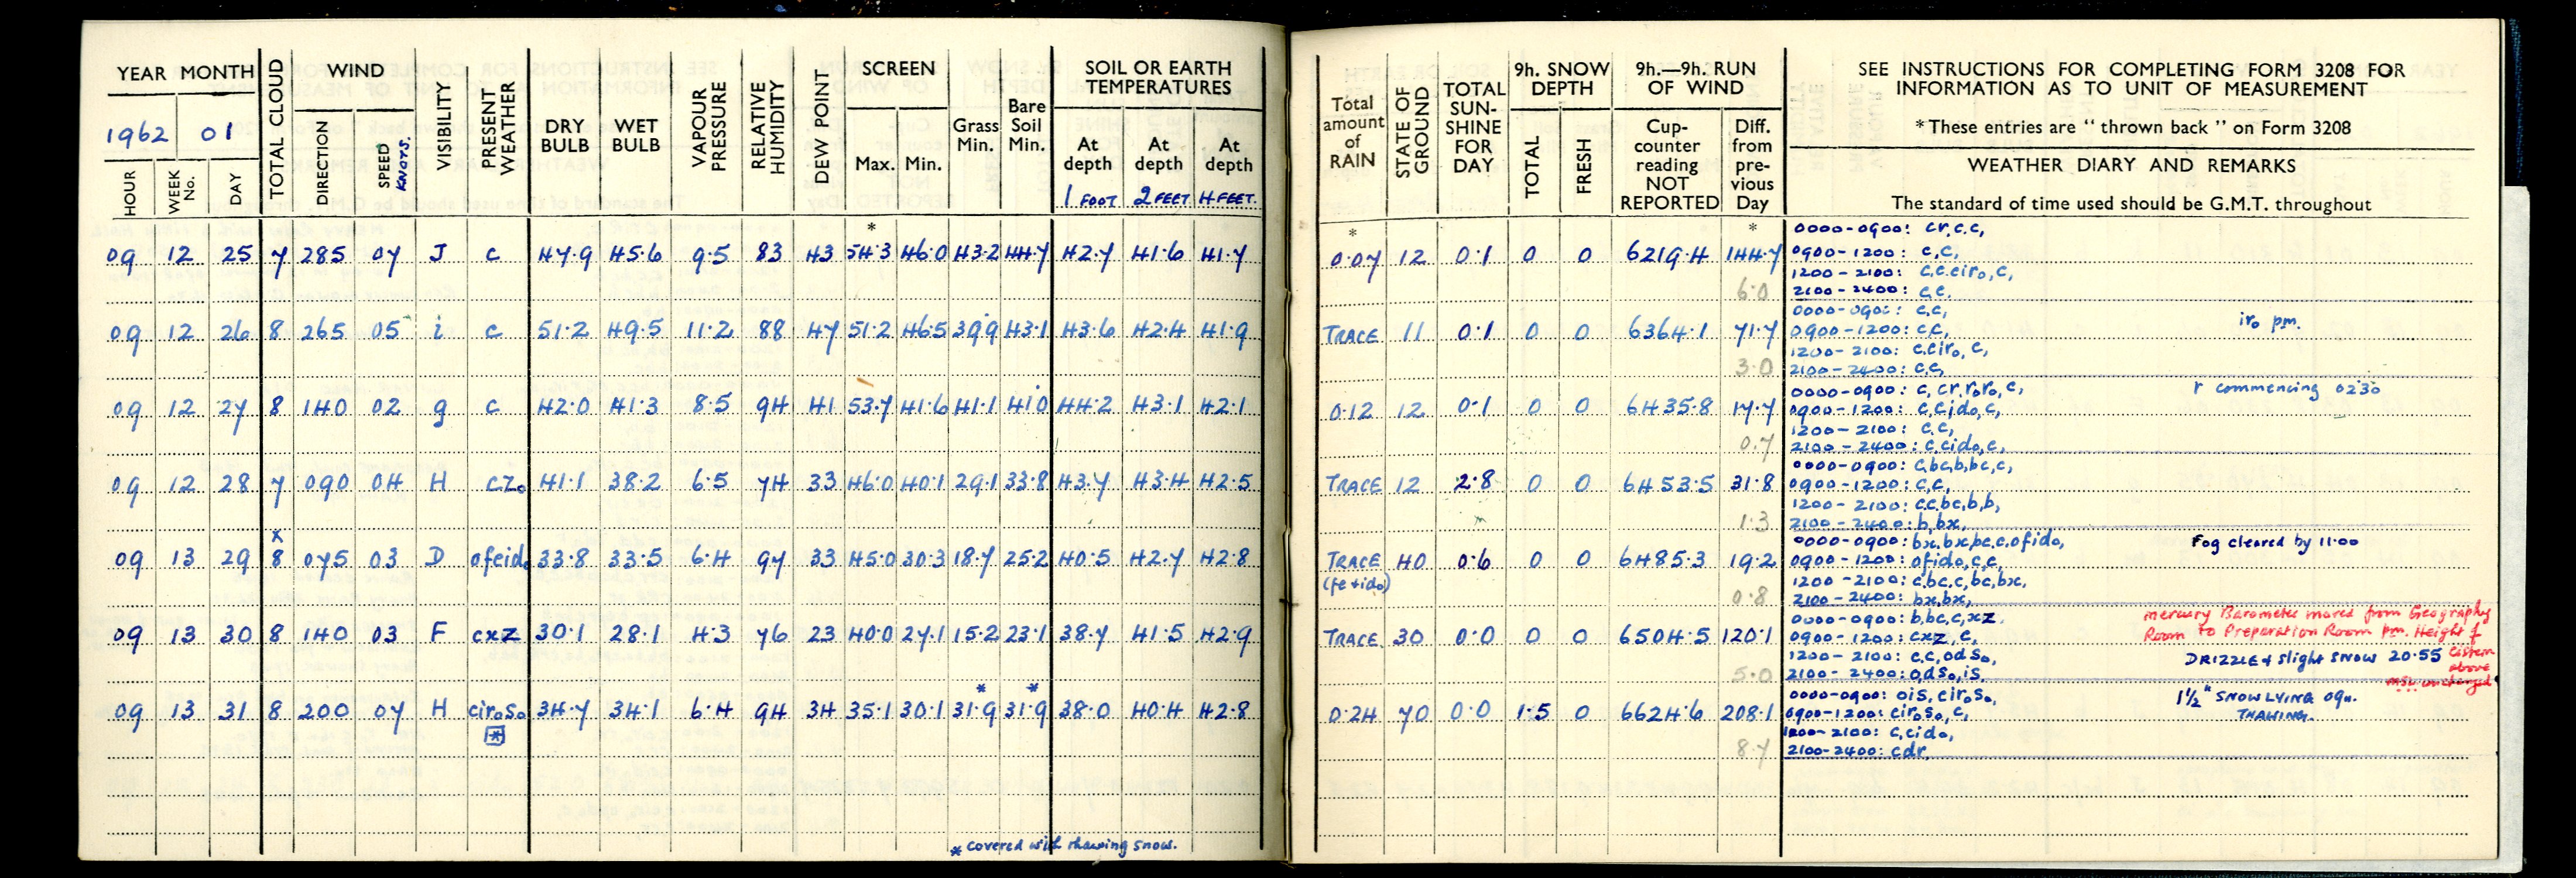 YEAR MONTH
1962 01
HOUR
WEEK No.
DAY
TOTAL CLOUD
WIND
DIRECTION
SPEED KNOTS.
VISIBILITY
PRESENT WEATHER
DRY BULB
WET BULB
VAPOUR PRESSURE
RELATIVE HUMIDITY
DEW POINT
SCREEN
Max. Min.
Grass Min.
Bare Soil Min.
SOIL OR EARTH TEMPERATURES
At depth 1 FOOT
At depth 2 FEET
At depth 4 FEET.
*
09 12 25 7 285 07 J c 47.9 45.6 9.5 83 43 54.3 46.0 43.2 44.7 42.7 41.6 41.7
09 12 26 8 265 05 i c 51.2 49.5 11.2 88 47 51.2 46.5 39.9 43.1 43.6 42.4 41.9
09 12 27 8 140 02 g c 42.0 41.3 8.5 94 41 53.7 41.6 41.1 41.0 44.2 43.1 42.1
09 12 28 7 090 04 H czo 41.1 38.2 6.5 74 33 46.0 40.1 29.1 33.8 43.7 43.4 42.5
x
09 13 29 8 075 03 D ofeido 33.8 33.5 6.4 97 33 45.0 30.3 18.7 25.2 40.5 42.7 42.8
09 13 30 8 140 03 F cxz 30.1 28.1 4.3 76 23 40.0 27.1 15.2 23.1 38.7 41.5 42.9
* *
09 13 31 8 200 07 H ciroso 34.7 34.1 6.4 94 34 35.1 30.1 31.9 31.9 38.0 40.4 42.8
* covered with thawing snow.
Total amount of RAIN
STATE OF GROUND
TOTAL SUN-SHINE FOR DAY
9h. SNOW DEPTH
TOTAL
FRESH
9h.—9h. RUN OF WIND
Cup-counter reading NOT REPORTED
Diff. from pre-vious Day
SEE INSTRUCTIONS FOR COMPLETING FORM 3208 FOR
INFORMATION AS TO UNIT OF MEASUREMENT
* These entries are "thrown back" on Form 3208
WEATHER DIARY AND REMARKS
The standard of time used should be G.M.T. throughout
* *
0000-0900: cr,c,c,
0.07 12 0.1 0 0 6219.4 144.7 0900-1200: c,c,
1200-2100: c,c,ciro,c,
6.0 2100-2400: c,c.
0000-0900: c,c, iro pm.
TRACE 11 0.1 0 0 6364.1 71.7 0900-1200: c,c,
1200-2100: c,ciro,c,
3.0 2100-2400: c,c,
0000-0900: c,cr,roro,c, r commencing 0230
0.12 12 0.1 0 0 6435.8 17.7 0900-1200: c,cido,c,
1200-2100: c,c,
0.7 2100-2400: c,cido,c,
0000-0900: c,bc,b,bc,c,
TRACE 12 2.8 0 0 6453.5 31.8 0900-1200: c,c,
1200-2100: c,c,bc,b,b,
1.3 2100-2400: b,bx,
0000-0900: bx,bx,bc,c,ofido, Fog cleared by 11.00
TRACE 40 0.6 0 0 6485.3 19.2 0900-1200: ofido,c,c,
(fe+ido) 1200-2100: c,bc,c,bc,bx,
0.8 2100-2400: bx,bx,
mercury Barometer moved from Geography
Room to Preparation Room pm. Height of
cistern above
MSL unchanged
0000-0900: b,bc,c,xz.
TRACE 30 0.0 0 0 6504.5 120.1 0900-1200: cxz,c,
1200-2100: c,c,odso, DRIZZLE + slight SNOW 20.55
5.0 2100-2400: o,dso,is,
0000-0900: ois,ciroso, 1½" SNOW LYING 09h.
0.24 70 0.0 1.5 0 6624.6 208.1 0900-1200: ciroso,c, THAWING.
1200-2100: c,cido,
8.7 2100-2400: cdr,